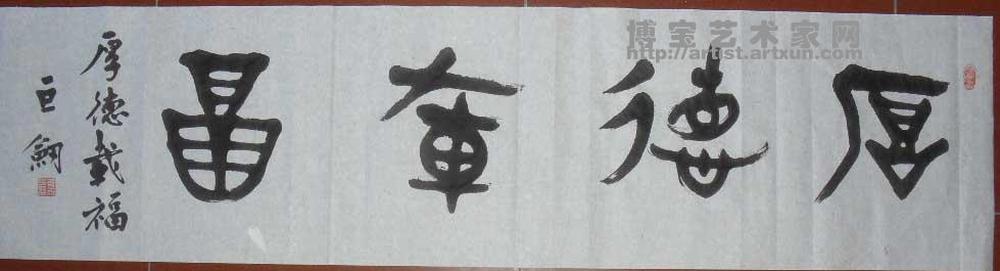 厚德載畐
厚德載福
巨
博宝艺术家网
http://artist.artxun.com